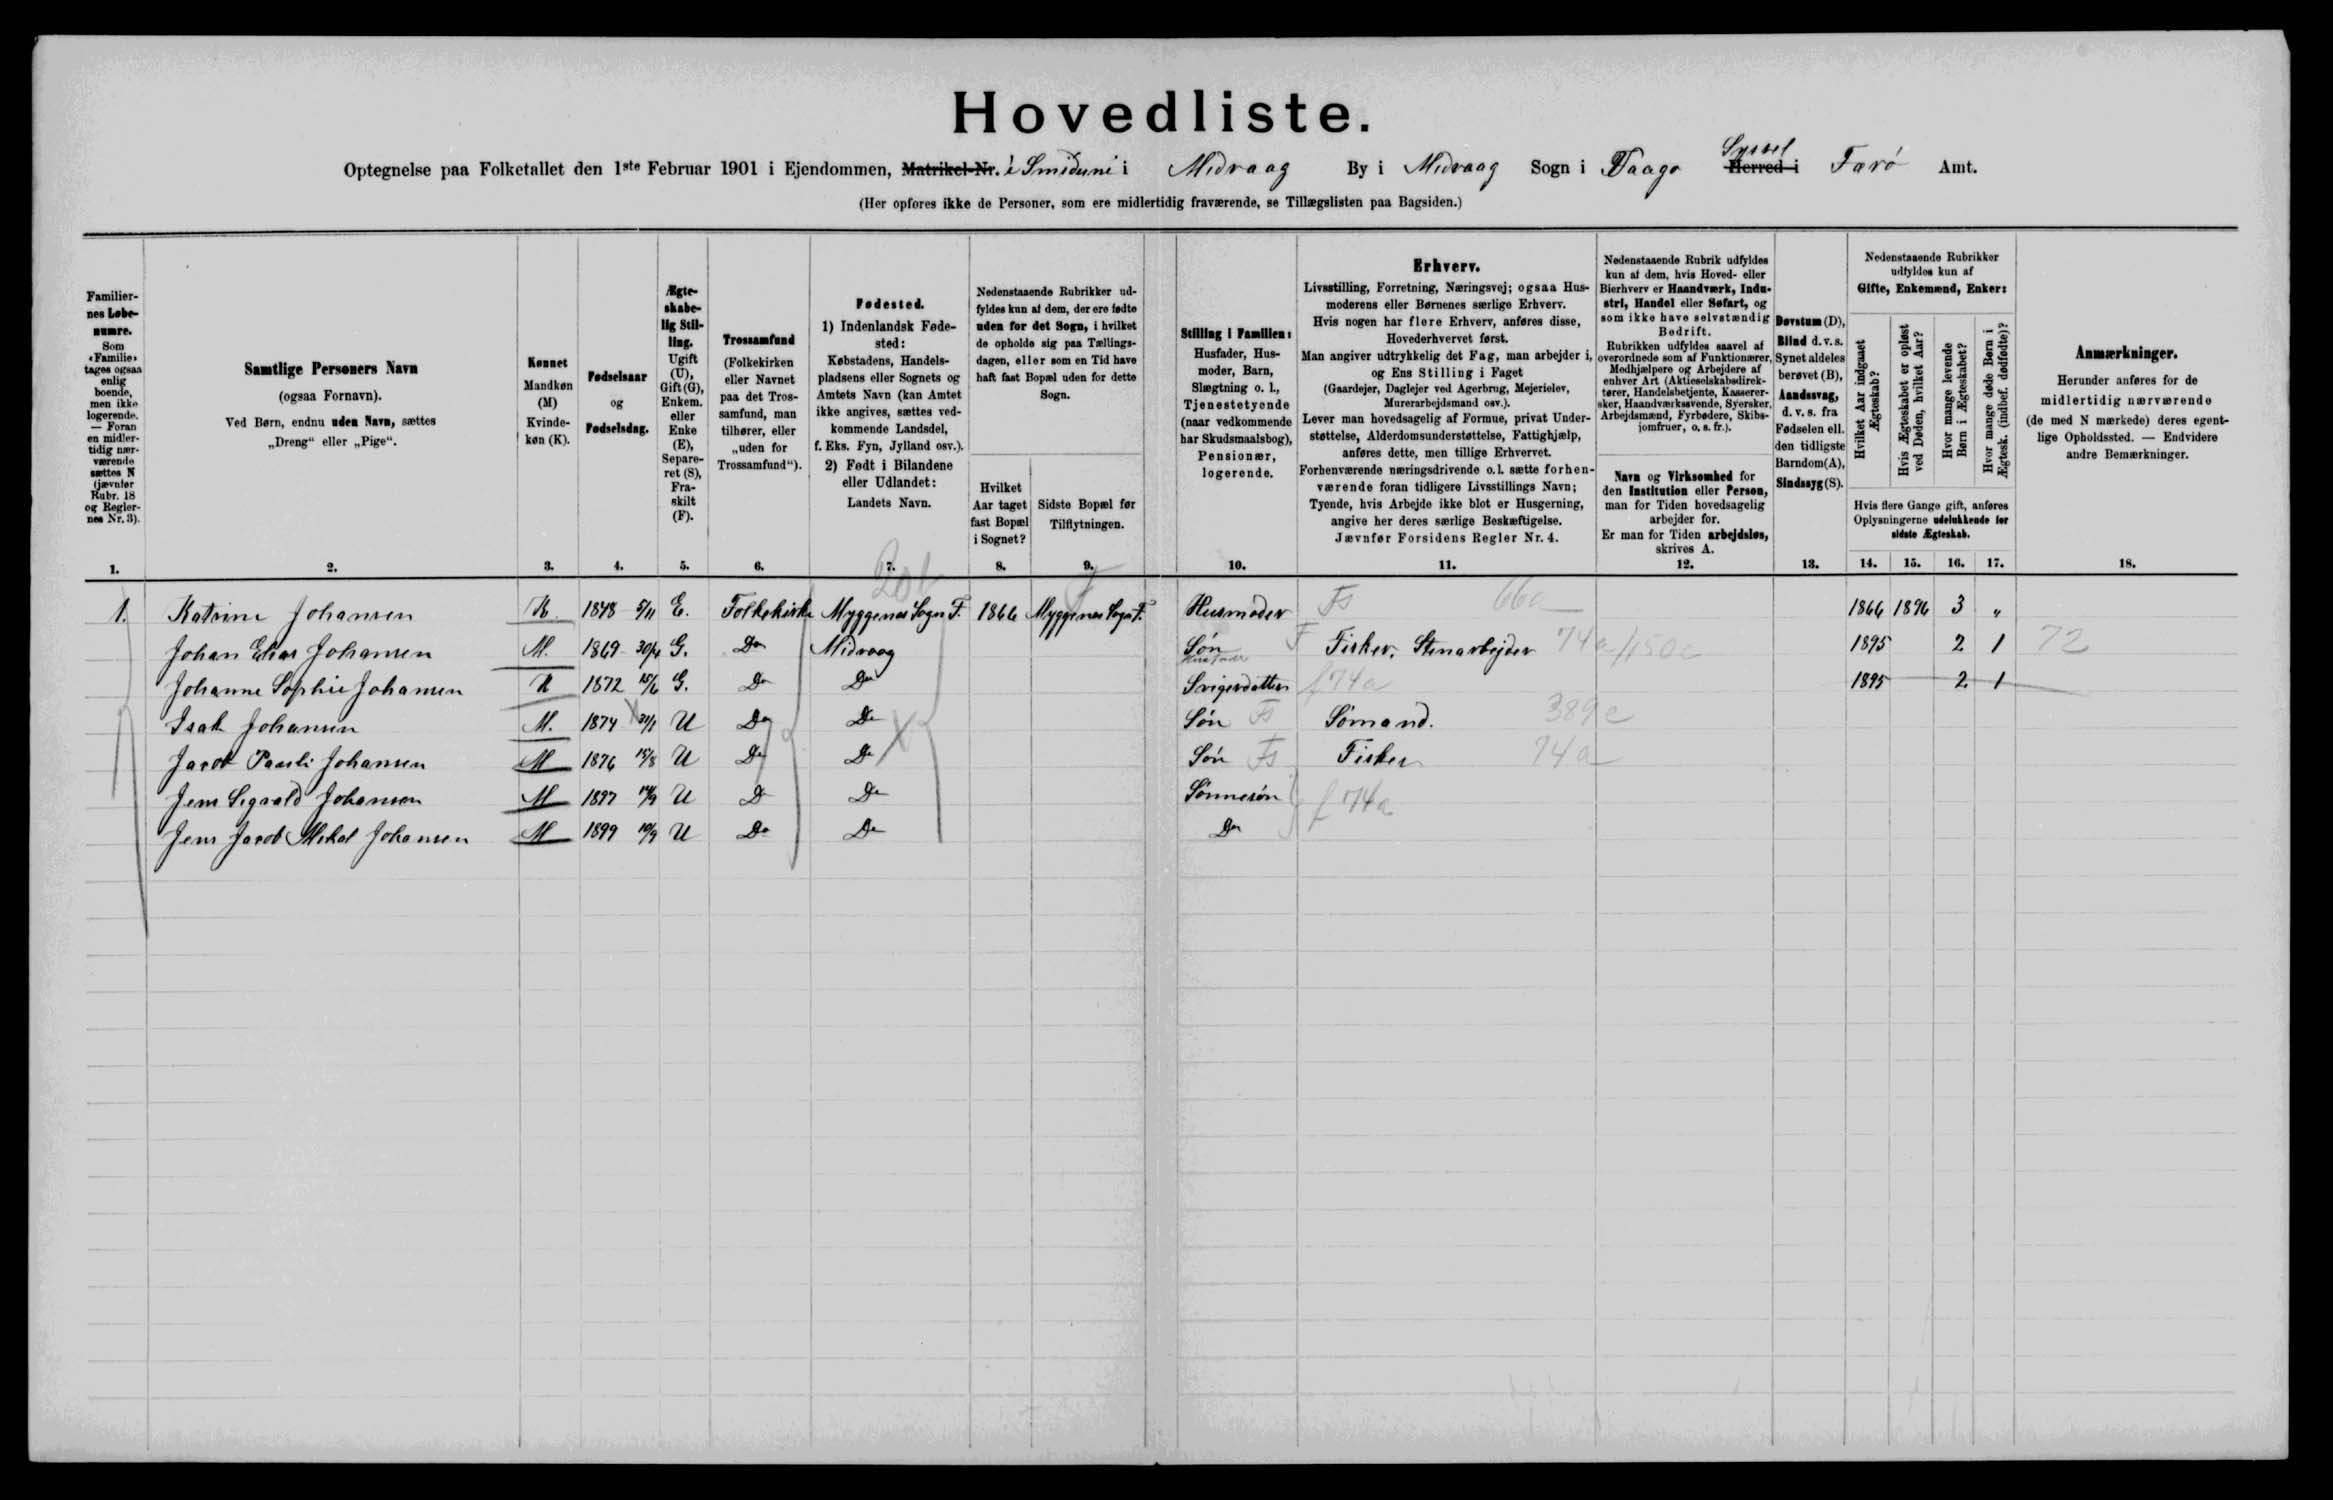 Hovedliste.
Syssel
Optegnelse paa Folketallet den 1ste Februar 1901 i Ejendommen, Matrikel-Nr. i Smiduni i Midvaag By i Midvaag Sogn i Vaagø Herred i Færø Amt.
(Her opføres ikke de Personer, som ere midlertidig fraværende, se Tillægslisten paa Bagsiden.)
Familier-
nes Løbe-
numre.
Som
«Familie»
tages ogsaa
enlig
boende,
men ikke
logerende.
— Foran
en midler-
tidig nær-
værende
sættes N
(jævnfør
Rubr. 18
og Regler-
nes Nr. 3).
1.
Samtlige Personers Navn
(ogsaa Fornavn).
Ved Børn, endnu uden Navn, sættes
„Dreng“ eller „Pige“.
2.
Kønnet
Mandkøn
(M)
Kvinde-
køn (K).
3.
Fødselsaar
og
Fødselsdag.
4.
Ægte-
skabe-
lig Stil-
ling.
Ugift
(U),
Gift (G),
Enkem.
eller
Enke
(E),
Separe-
ret (S),
Fra-
skilt
(F).
5.
Trossamfund
(Folkekirken
eller Navnet
paa det Tros-
samfund, man
tilhører, eller
„uden for
Trossamfund“).
6.
Fødested.
1) Indenlandsk Føde-
sted:
Købstadens, Handels-
pladsens eller Sognets og
Amtets Navn (kan Amtet
ikke angives, sættes ved-
kommende Landsdel,
f. Eks. Fyn, Jylland osv.).
2) Født i Bilandene
eller Udlandet:
Landets Navn.
7.
Nedenstaaende Rubrikker ud-
fyldes kun af dem, der ere fødte
uden for det Sogn, i hvilket
de opholde sig paa Tællings-
dagen, eller som en Tid have
haft fast Bopæl uden for dette
Sogn.
Hvilket
Aar taget
fast Bopæl
i Sognet?
8.
Sidste Bopæl før
Tilflytningen.
9.
Stilling i Familien:
Husfader, Hus-
moder, Barn,
Slægtning o. l.,
Tjenestetyende
(naar vedkommende
har Skudsmaalsbog),
Pensionær,
logerende.
10.
Erhverv.
Livsstilling, Forretning, Næringsvej; ogsaa Hus-
moderens eller Børnenes særlige Erhverv.
Hvis nogen har flere Erhverv, anføres disse,
Hovederhvervet først.
Man angiver udtrykkelig det Fag, man arbejder i,
og Ens Stilling i Faget
(Gaardejer, Daglejer ved Agerbrug, Mejerielev,
Murerarbejdsmand osv.).
Lever man hovedsagelig af Formue, privat Under-
støttelse, Alderdomsunderstøttelse, Fattighjælp,
anføres dette, men tillige Erhvervet.
Forhenværende næringsdrivende o.l. sætte forhen-
værende foran tidligere Livsstillings Navn;
Tyende, hvis Arbejde ikke blot er Husgerning,
angive her deres særlige Beskæftigelse.
Jævnfør Forsidens Regler Nr. 4.
11.
Nedenstaaende Rubrik udfyldes
kun af dem, hvis Hoved- eller
Bierhverv er Haandværk, Indu-
stri, Handel eller Søfart, og
som ikke have selvstændig
Bedrift.
Rubrikken udfyldes saavel af
overordnede som af Funktionærer,
Medhjælpere og Arbejdere af
enhver Art (Aktieselskabsdirek-
tører, Handelsbetjente, Kasserer-
sker, Haandværkssvende, Syersker,
Arbejdsmænd, Fyrbødere, Skibs-
jomfruer, o. s. fr.).
Navn og Virksomhed for
den Institution eller Person,
man for Tiden hovedsagelig
arbejder for.
Er man for Tiden arbejdsløs,
skrives A.
12.
Døvstum (D),
Blind d. v. s.
Synet aldeles
berøvet (B),
Aandssvag,
d. v. s. fra
Fødselen ell.
den tidligste
Barndom (A),
Sindssyg (S).
13.
Nedenstaaende Rubrikker
udfyldes kun af
Gifte, Enkemænd, Enker:
Hvilket Aar indgaaet
Ægteskab?
Hvis Ægteskabet er opløst
ved Døden, hvilket Aar?
Hvor mange levende
Børn i Ægteskabet?
Hvor mange døde Børn i
Ægtesk. (indbef. dødfødte)?
Hvis flere Gange gift, anføres
Oplysningerne udelukkende for
sidste Ægteskab.
14. 15. 16. 17.
Anmærkninger.
Herunder anføres for de
midlertidig nærværende
(de med N mærkede) deres egent-
lige Opholdssted. — Endvidere
andre Bemærkninger.
18.
1. Katrine Johansen K. 1848 5/11 E. Folkekirke Myggenæs Sogn F. 1866 Myggenæs Sogn F. Husmoder Fs 66a 1866 1896 3 "
Johan Elias Johansen M. 1869 30/4 G. Do Midvaag Søn Husfader F Fisker, Stenarbejder 74a/150c 1895 2 1 72
Johanne Sophie Johansen K 1872 15/6 G. Do Do Svigerdatter f 74a 1895 2 1
Isak Johansen M. 1874 31/1 U Do Do Søn Fs Sømand. 389c
Jacob Pauli Johansen M 1876 15/8 U Do Do Søn Fs Fisker 74a
Jens Sigvald Johansen M 1897 14/9 U Do Do Sønnesøn f 74a
Jens Jacob Mikal Johansen M 1899 10/9 U Do Do Do